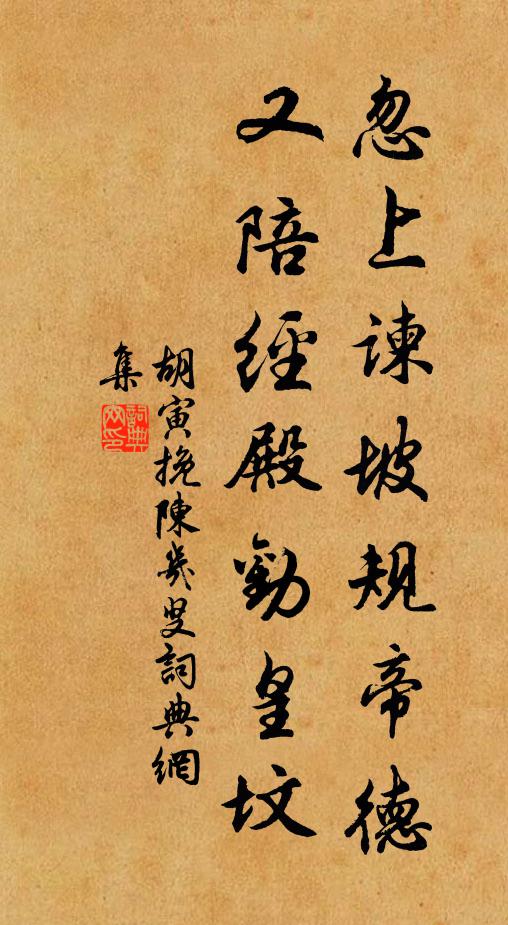 忽上諫坡規帝德
又陪經殿勸皇墳
胡寅挽陳幾叟詞典網
集
詞典網印